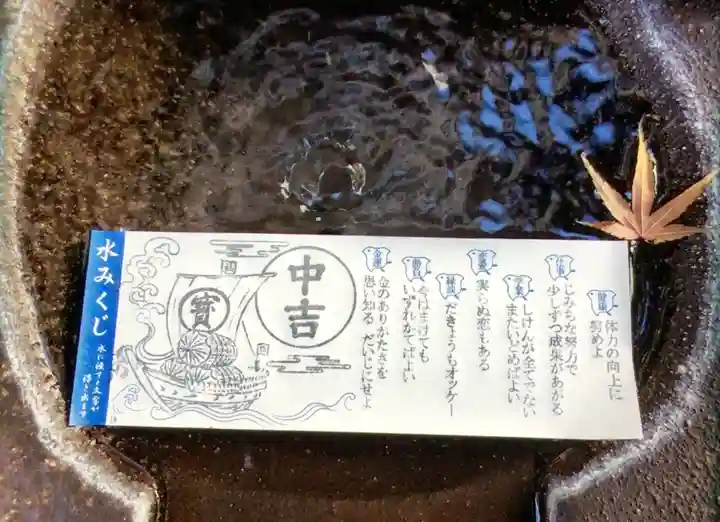 水みくじ
水に浸すと文字が
浮き出ます
中吉
寳
健康
体力の向上に
努めよ
仕事
じみちな努力で
少しずつ成果があがる
学業
しけんが全てでない
またいどめばよい
恋愛
実らぬ恋もある
縁談
だきょうもオッケー
勝負
今はまけても
いずれかてばよい
金運
金のありがたさを
思い知る だいじにせよ